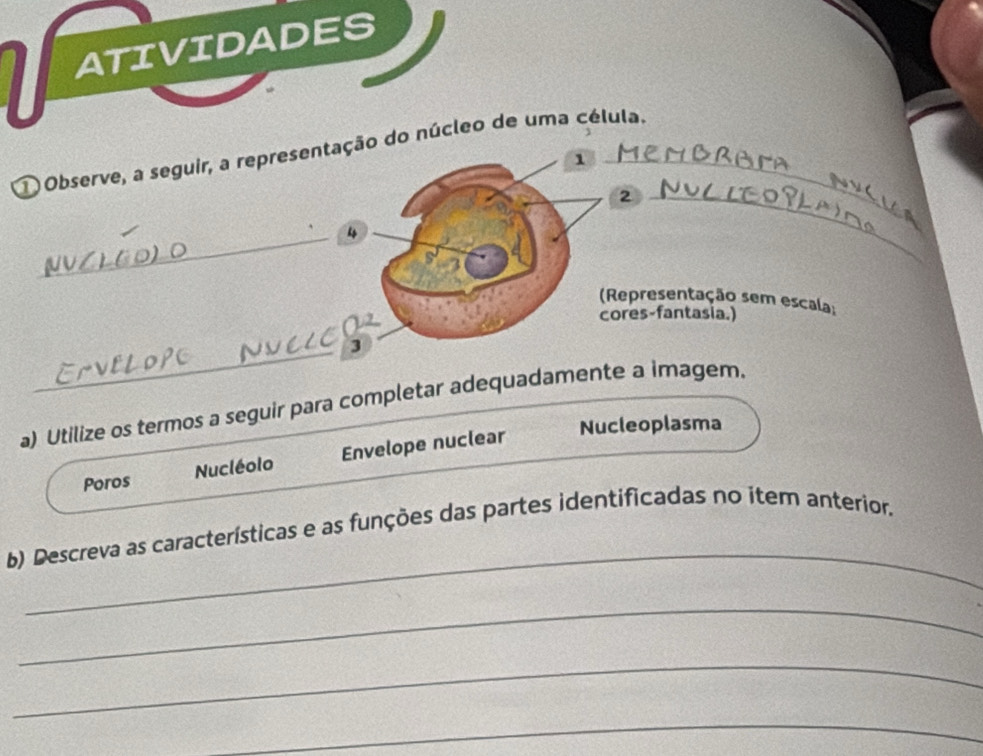 ATIVIDADES
1 Observe, a seguir, a representação do núcleo de uma célula.
1 MEMBRANA NUCLEA
2 NUCLEOPLASMA
4 NUCLEOLO
(Representação sem escala;
cores-fantasia.)
3 ENVELOPE NUCLEAR
a) Utilize os termos a seguir para completar adequadamente a imagem.
Poros Nucléolo Envelope nuclear Nucleoplasma
b) Descreva as características e as funções das partes identificadas no item anterior.